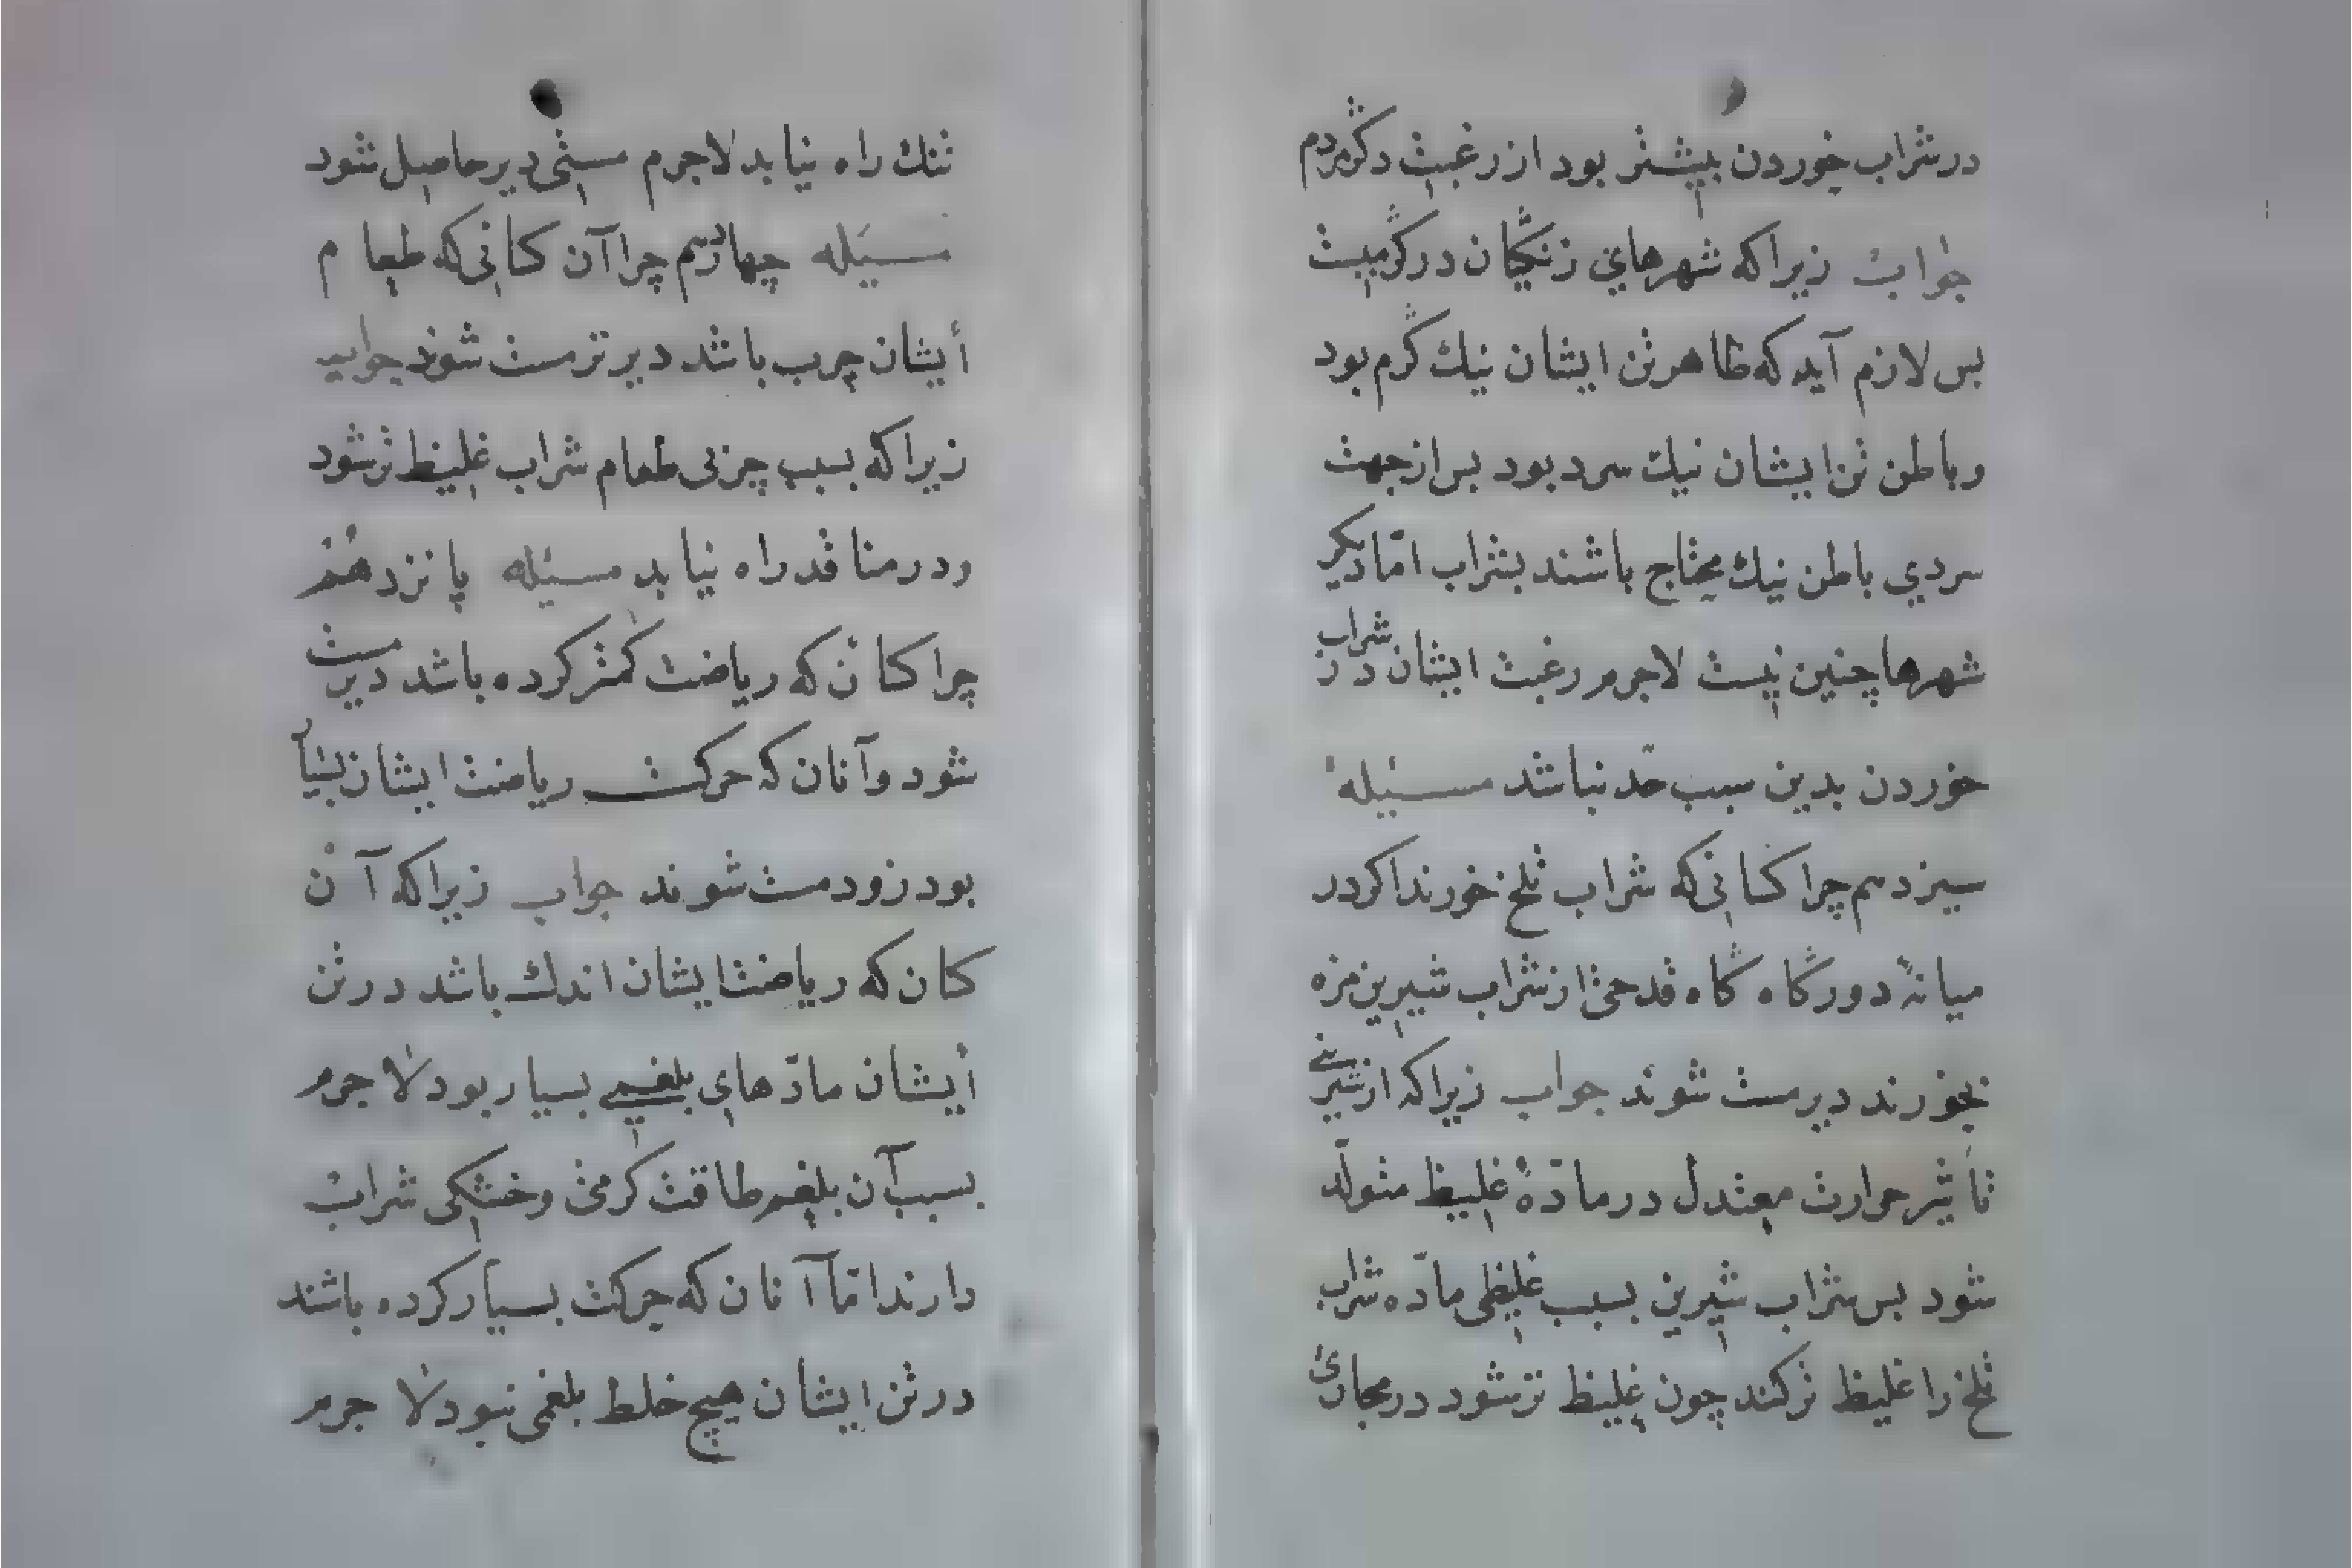 در شراب خوردن بیشتر بود از رغبت دگر مردم
جواب زیرا که شهرهای زنگیان در گرمیست
بس لازم آید که ظاهر تن ایشان نیک گرم بود
و باطن تن ایشان نیک سرد بود بس از جهت
سردی باطن نیک محتاج باشند بشراب امّا دیگر
شهرها چنین نیست لاجرم رغبت ایشان در شراب
خوردن بدین سبب حدّ نباشد مسئله
سیزدهم چرا کسانی که شراب تلخ خورند اگر در
میانهٔ دور گاه گاه قدحی از شراب شیرین مزه
بخورند دیر مست شوند جواب زیرا که از شیرینی
تأثیر حرارت معتدل در مادّهٔ غلیظ متولّد
شود بس شراب شیرین بسبب غلیظی مادّه شراب
تلخ را غلیظ تر کند چون غلیظ تر شود در مجاری
تنک راه نیابد لاجرم مستی دیر حاصل شود
مسئله چهاردهم چرا آن کسانی که طعام
أیشان چرب باشد دیرتر مست شوند جواب
زیرا که بسبب چربی طعام شراب غلیظ تر شود
و در منافذ راه نیابد مسئله پانزدهم
چرا کسان که ریاضت کمتر کرده باشد دیر مست
شود و آنان که حرکت ریاضت ایشان بسیار
بود زود مست شوند جواب زیرا که آن
کسان که ریاضت ایشان اندک باشد در تن
أیشان مادّهای بلغمی بسیار بود لاجرم
بسبب آن بلغم طاقت گرمی و خشکی شراب
دارند امّا آنان که حرکت بسیار کرده باشند
در تن ایشان هیچ خلط بلغمی نبود لاجرم